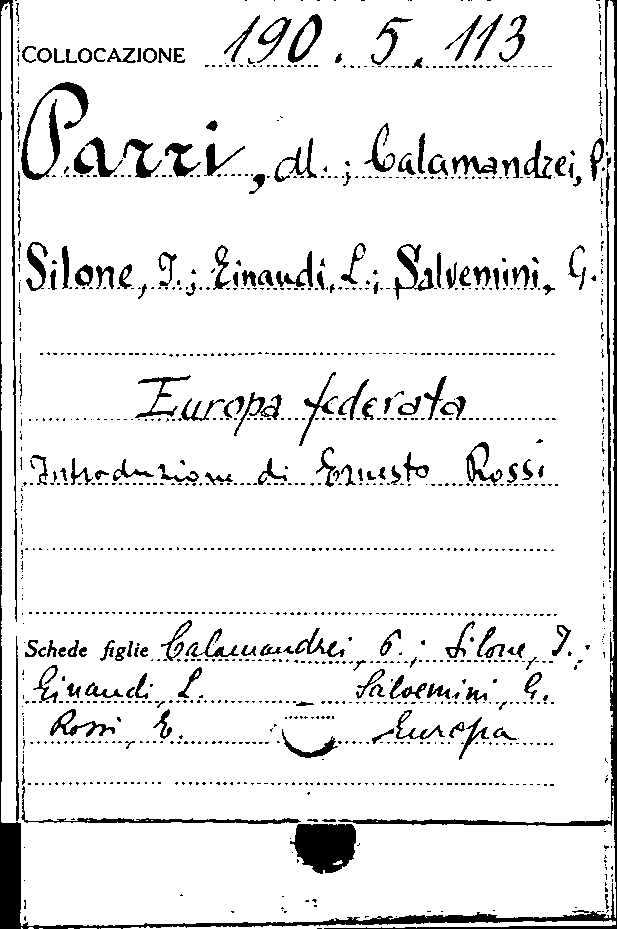 COLLOCAZIONE 190.5.113
Parri, ; Calamandrei, P.;
Silone, I.; Einaudi, L.; Salvemini, G.
Europa federata
Introduzione di Ernesto Rossi
Schede figlie Calamandrei, P.; Silone, I.;
Einaudi, L. Salvemini, G.
Rossi, E. Europa